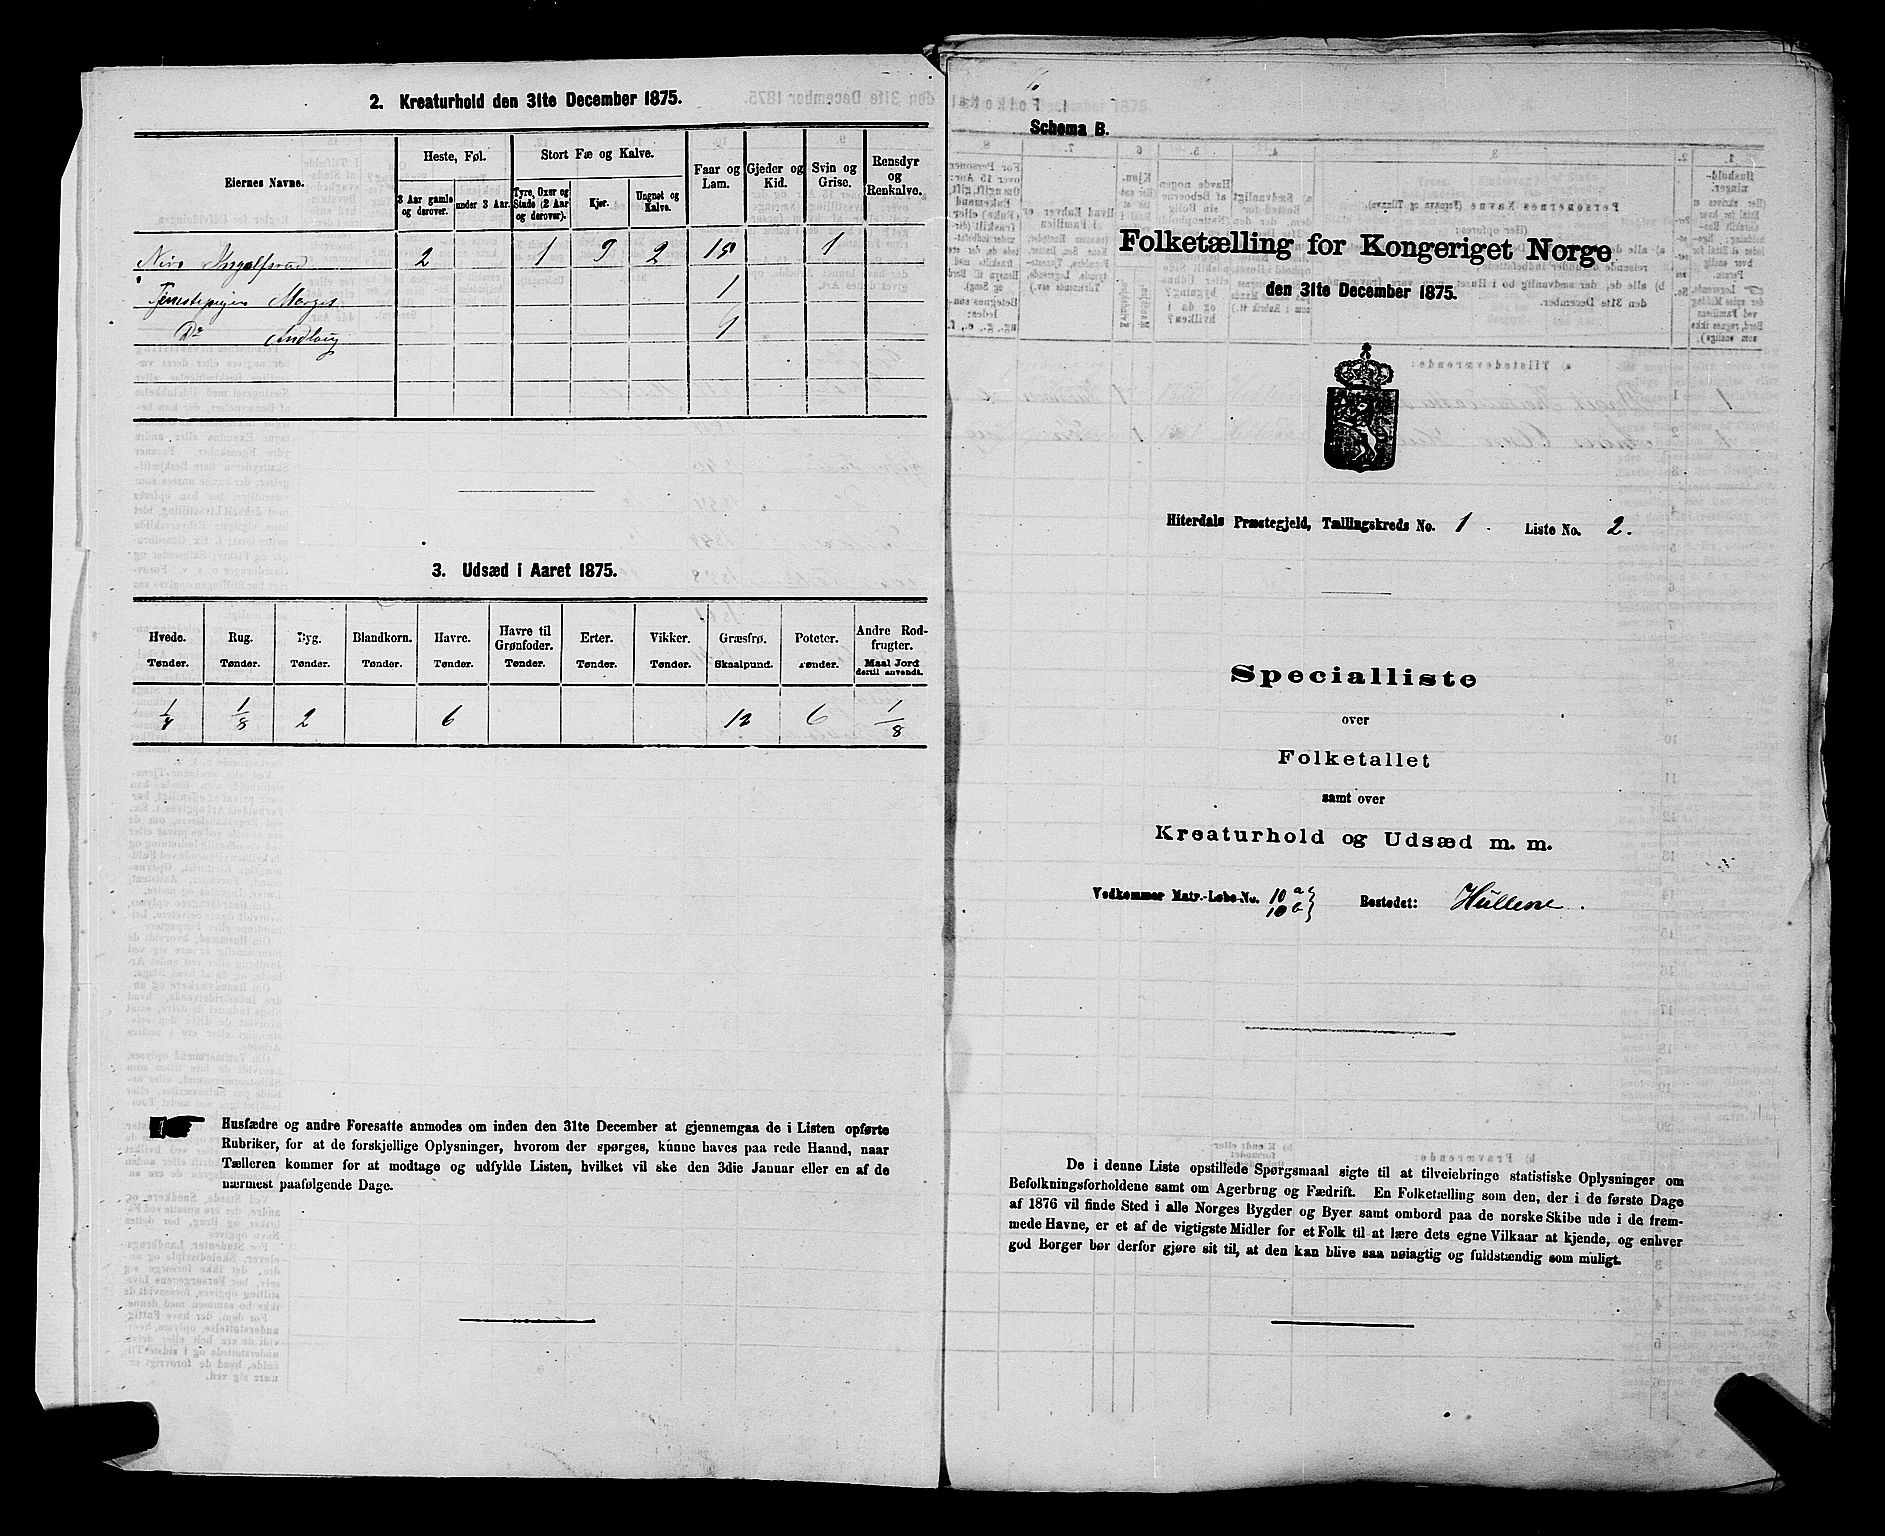 2. Kreaturhold den 31te December 1875.
Eiernes Navne.
Heste, Føl.
Stort Fæ og Kalve.
Faar og Lam.
Gjeder og Kid.
Svin og Grise.
Rensdyr og Renkalve.
3 Aar gamle og derover.
under 3 Aar.
Tyre, Oxer og Stude (2 Aar og derover).
Kjør.
Ungnøt og Kalve.
Ingolfsrud 2 1 9 2 15 1
Tjenestepigen Marget 1
Do 1
3. Udsæd i Aaret 1875.
Hvede. Rug. Byg. Blandkorn. Havre. Havre til Grønfoder. Erter. Vikker. Græsfrø. Poteter. Andre Rodfrugter.
Tønder. Tønder. Tønder. Tønder. Tønder. Tønder. Tønder. Tønder. Skaalpund. Tønder. Maal Jord dertil anvendt.
1/4 1/8 2 6 12 6 1/8
Husfædre og andre Foresatte anmodes om inden den 31te December at gjennemgaa de i Listen opførte
Rubriker, for at de forskjellige Oplysninger, hvorom der spørges, kunne haves paa rede Haand, naar
Tælleren kommer for at modtage og udfylde Listen, hvilket vil ske den 3die Januar eller en af de
nærmest paafølgende Dage.
Schema B.
Folketælling for Kongeriget Norge
den 31te December 1875.
Hiterdals Præstegjeld, Tællingskreds No. 1. Liste No. 2.
Specialliste
over
Folketallet
samt over
Kreaturhold og Udsæd m. m.
Vedkommer Matr.-Løbe-No. 10 a} Bostedet: Hullene.
10 b}
De i denne Liste opstillede Spørgsmaal sigte til at tilveiebringe statistiske Oplysninger om
Befolkningsforholdene samt om Agerbrug og Fædrift. En Folketælling som den, der i de første Dage
af 1876 vil finde Sted i alle Norges Bygder og Byer samt ombord paa de norske Skibe ude i de frem-
mede Havne, er et af de vigtigste Midler for et Folk til at lære dets egne Vilkaar at kjende, og enhver
god Borger bør derfor gjøre sit til, at den kan blive saa nøiagtig og fuldstændig som muligt.